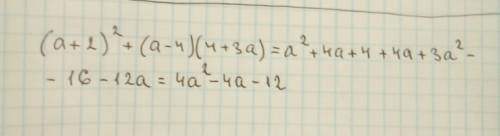 (a+2)²+(a-4)(4+3a)=a²+4a+4+4a+3a²-
-16-12a=4a²-4a-12